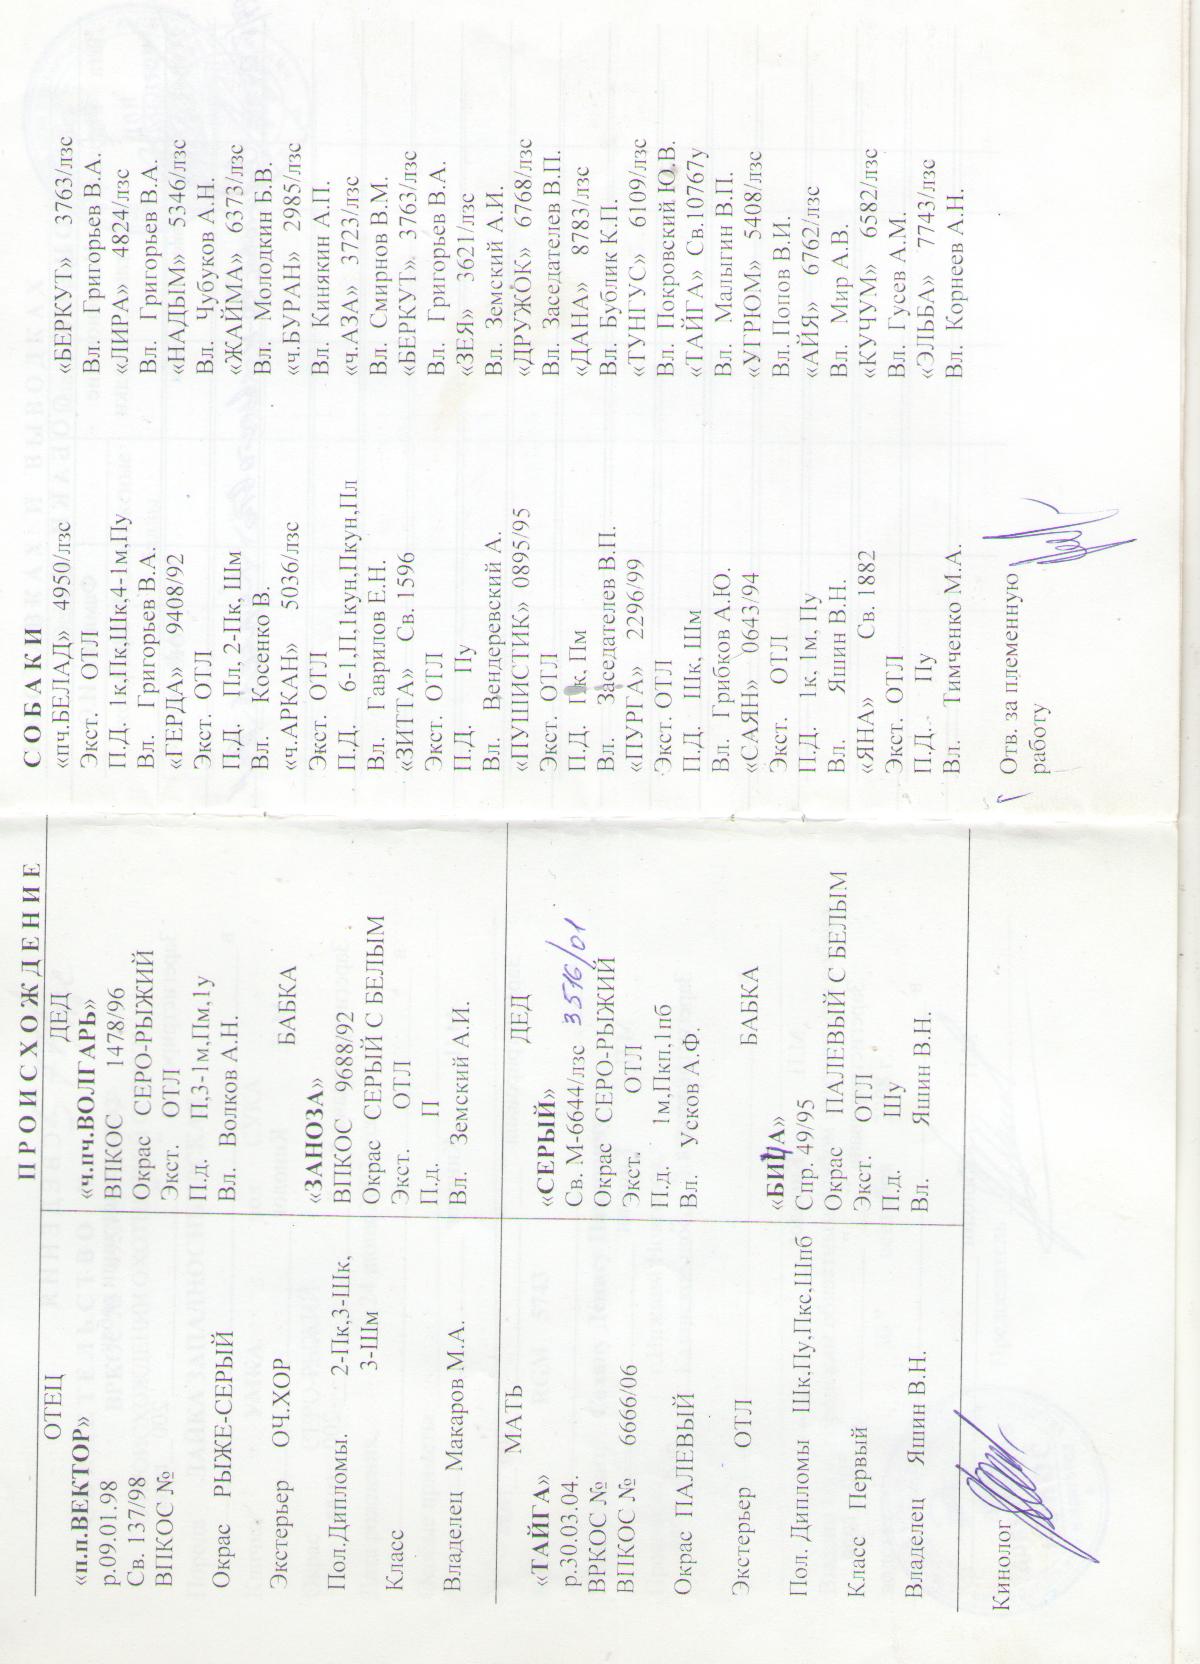 ПРОИСХОЖДЕНИЕ
ОТЕЦ
«п.п.ВЕКТОР»
р.09.01.98
Св. 137/98
ВПКОС №
Окрас РЫЖЕ-СЕРЫЙ
Экстерьер ОЧ.ХОР
Пол.Дипломы. 2-IIк,3-IIIк,
3-IIIм
Класс
Владелец Макаров М.А.
ДЕД
«ч.пч.ВОЛГАРЬ»
ВПКОС 1478/96
Окрас СЕРО-РЫЖИЙ
Экст. ОТЛ
П.д. II,3-1м,IIм,1у
Вл. Волков А.Н.
БАБКА
«ЗАНОЗА»
ВПКОС 9688/92
Окрас СЕРЫЙ С БЕЛЫМ
Экст. ОТЛ
П.д. II
Вл. Земский А.И.
МАТЬ
«ТАЙГА»
р.30.03.04.
ВРКОС №
ВПКОС № 6666/06
Окрас ПАЛЕВЫЙ
Экстерьер ОТЛ
Пол. Дипломы IIIк,IIу,IIкс,IIIпб
Класс Первый
Владелец Яшин В.Н.
ДЕД
«СЕРЫЙ»
Св. М-6644/лзс 3516/01
Окрас СЕРО-РЫЖИЙ
Экст. ОТЛ
П.д. 1м,IIкп,1пб
Вл. Усков А.Ф.
БАБКА
Спр. 49/95
Окрас ПАЛЕВЫЙ С БЕЛЫМ
Экст. ОТЛ
П.д. IIIу
Вл. Яшин В.Н.
Кинолог
СОБАКИ
«пч.БЕЛАД» 4950/лзс
Экст. ОТЛ
П.Д. 1к,IIк,IIIк,4-1м,IIу
Вл. Григорьев В.А.
«ГЕРДА» 9408/92
Экст. ОТЛ
П.Д. IIл, 2-IIк, IIIм
Вл. Косенко В.
«ч.АРКАН» 5036/лзс
Экст. ОТЛ
П.Д. 6-1,II,1кун,IIкун,IIл
Вл. Гаврилов Е.Н.
«ЗИТТА» Св. 1596
Экст. ОТЛ
П.Д. IIу
Вл. Вендеревский А.
«ПУШИСТИК» 0895/95
Экст. ОТЛ
П.Д. IIк, IIм
Вл. Заседателев В.П.
«ПУРГА» 2296/99
Экст. ОТЛ
П.Д. IIIк, IIIм
Вл. Грибков А.Ю.
«САЯН» 0643/94
Экст. ОТЛ
П.Д. 1к, 1м, IIу
Вл. Яшин В.Н.
«ЯНА» Св. 1882
Экст. ОТЛ
П.Д. IIу
Вл. Тимченко М.А.
«БЕРКУТ» 3763/лзс
Вл. Григорьев В.А.
«ЛИРА» 4824/лзс
Вл. Григорьев В.А.
«НАДЫМ» 5346/лзс
Вл. Чубуков А.Н.
«ЖАЙМА» 6373/лзс
Вл. Молодкин Б.В.
«ч.БУРАН» 2985/лзс
Вл. Кинякин А.П.
«ч.АЗА» 3723/лзс
Вл. Смирнов В.М.
«БЕРКУТ» 3763/лзс
Вл. Григорьев В.А.
«ЗЕЯ» 3621/лзс
Вл. Земский А.И.
«ДРУЖОК» 6768/лзс
Вл. Заседателев В.П.
«ДАНА» 8783/лзс
Вл. Бублик К.П.
«ТУНГУС» 6109/лзс
Вл. Покровский Ю.В.
«ТАЙГА» Св.10767у
Вл. Малыгин В.П.
«УГРЮМ» 5408/лзс
Вл.Попов В.И.
«АЙЯ» 6762/лзс
Вл. Мир А.В.
«КУЧУМ» 6582/лзс
Вл. Гусев А.М.
«ЭЛЬБА» 7743/лзс
Вл. Корнеев А.Н.
Отв. за племенную
работу